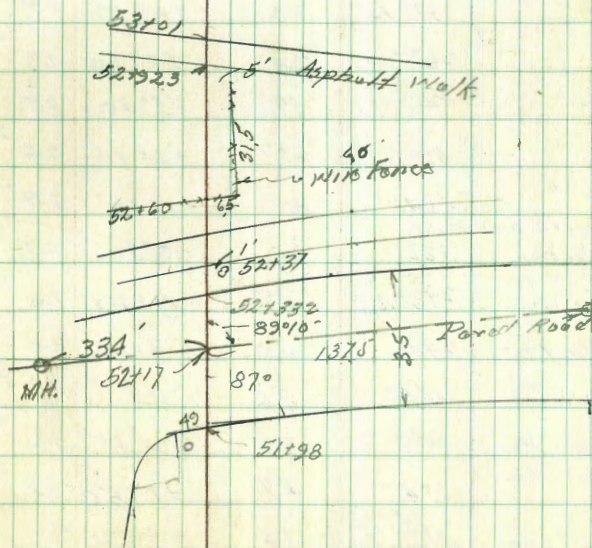 53+01
52+92.3
5'
Asphalt Walk
31.5
Wire Fence
52+60
6.5
1'
52+37
52+33.2
89°10'
334'
1375
35'
Paved Road
M.H.
52+17
87°
51+98